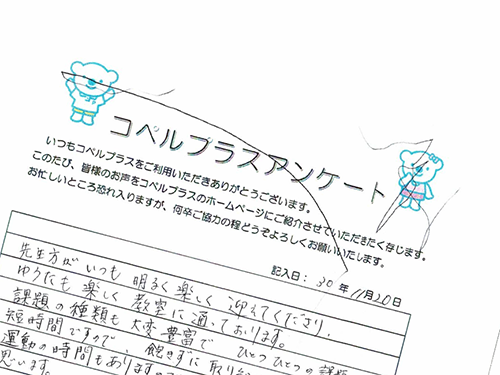 コペルプラスアンケート
いつもコペルプラスをご利用いただきありがとうございます。
このたび、皆様のお声をコペルプラスのホームページにご紹介させていただきたく存じます。
お忙しいところ恐れ入りますが、何卒ご協力の程どうぞよろしくお願いいたします。
記入日：30年11月20日
先生方がいつも明るく楽しく迎えてくださり、
ゆうたも楽しく教室に通っております。
課題の種類も大変豊富で ひとつひとつの課題
短時間ですので、飽きずに取り
運動の時間もあります
思います。